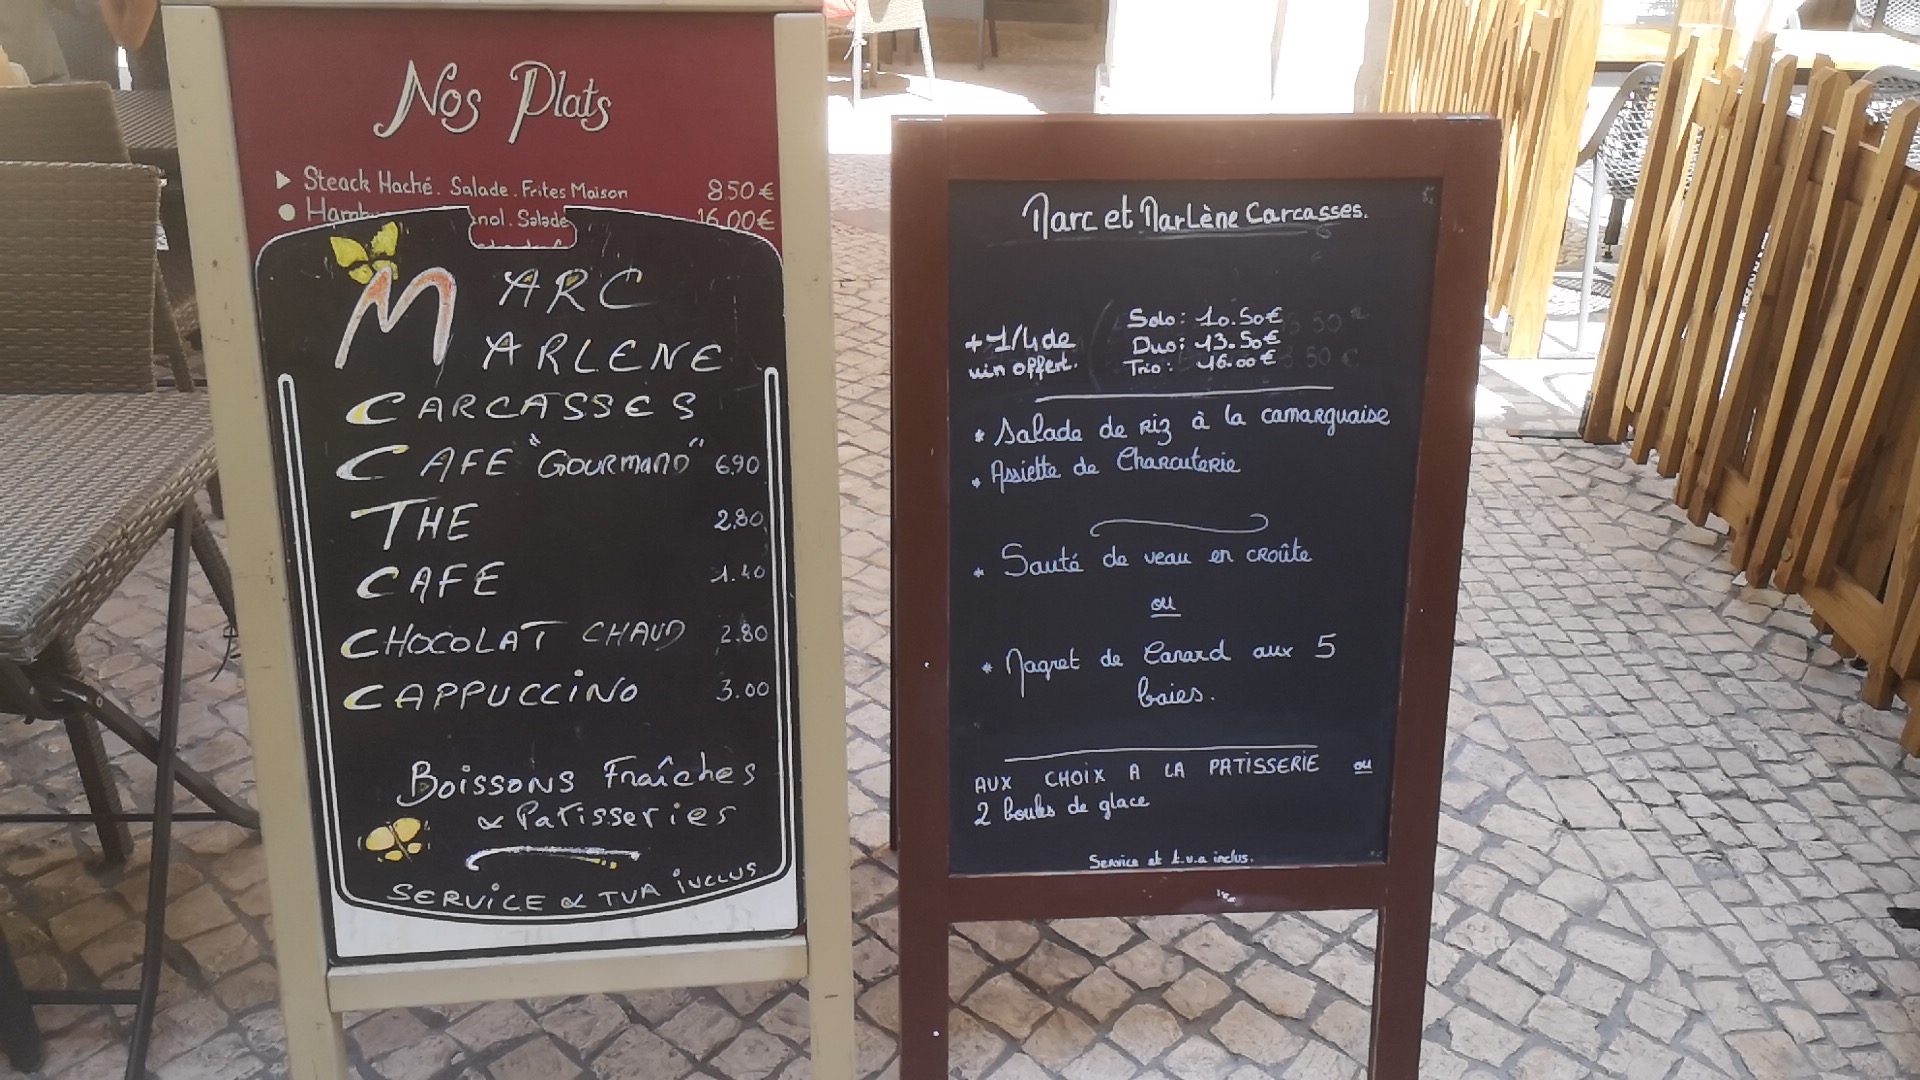 Nos Plats
Steack Haché. Salade. Frites Maison 8.50 €
Salade 16.00€
MARC
MARLENE
CARCASSES
CAFE "GOURMAND" 6.90
THE 2.80
CAFE 1.40
CHOCOLAT CHAUD 2.80
CAPPUCCINO 3.00
BOISSONS FRAÎCHES
& PATISSERIES
SERVICE & TVA INCLUS
Marc et Marlène Carcasses.
+ 1/4 de
vin offert.
Solo: 10.50€
Duo: 13.50€
Trio: 16.00€
* Salade de riz à la camarguaise
* Assiette de Charcuterie
* Sauté de veau en croûte
ou
* Magret de Canard aux 5
baies.
AUX CHOIX A LA PATISSERIE ou
2 boules de glace
Service et t.v.a inclus.